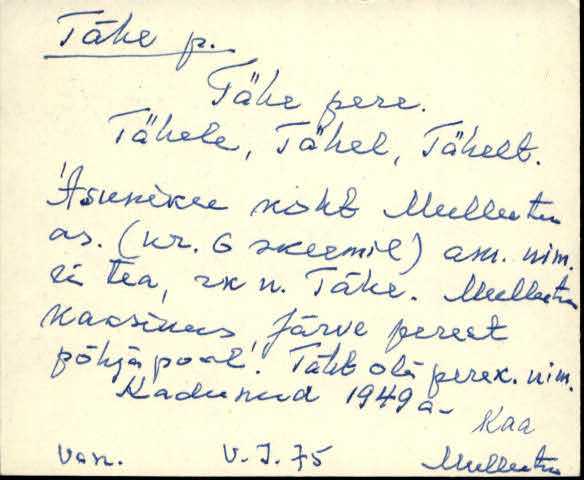 Tähe p.
Tähe pere.
Tähele, Tähel, Tähelt.
'Asunikee koht Mullutu
as. (nr. 6 skeemil) asu. nim.
ei tea, rk n. Tähe. Mullutu
Kaasikus Järve perest
põhja pool'. Täht oli perek. nim.
Kadunud 1949 a.
Kaa
V. J. 75
Mullutu